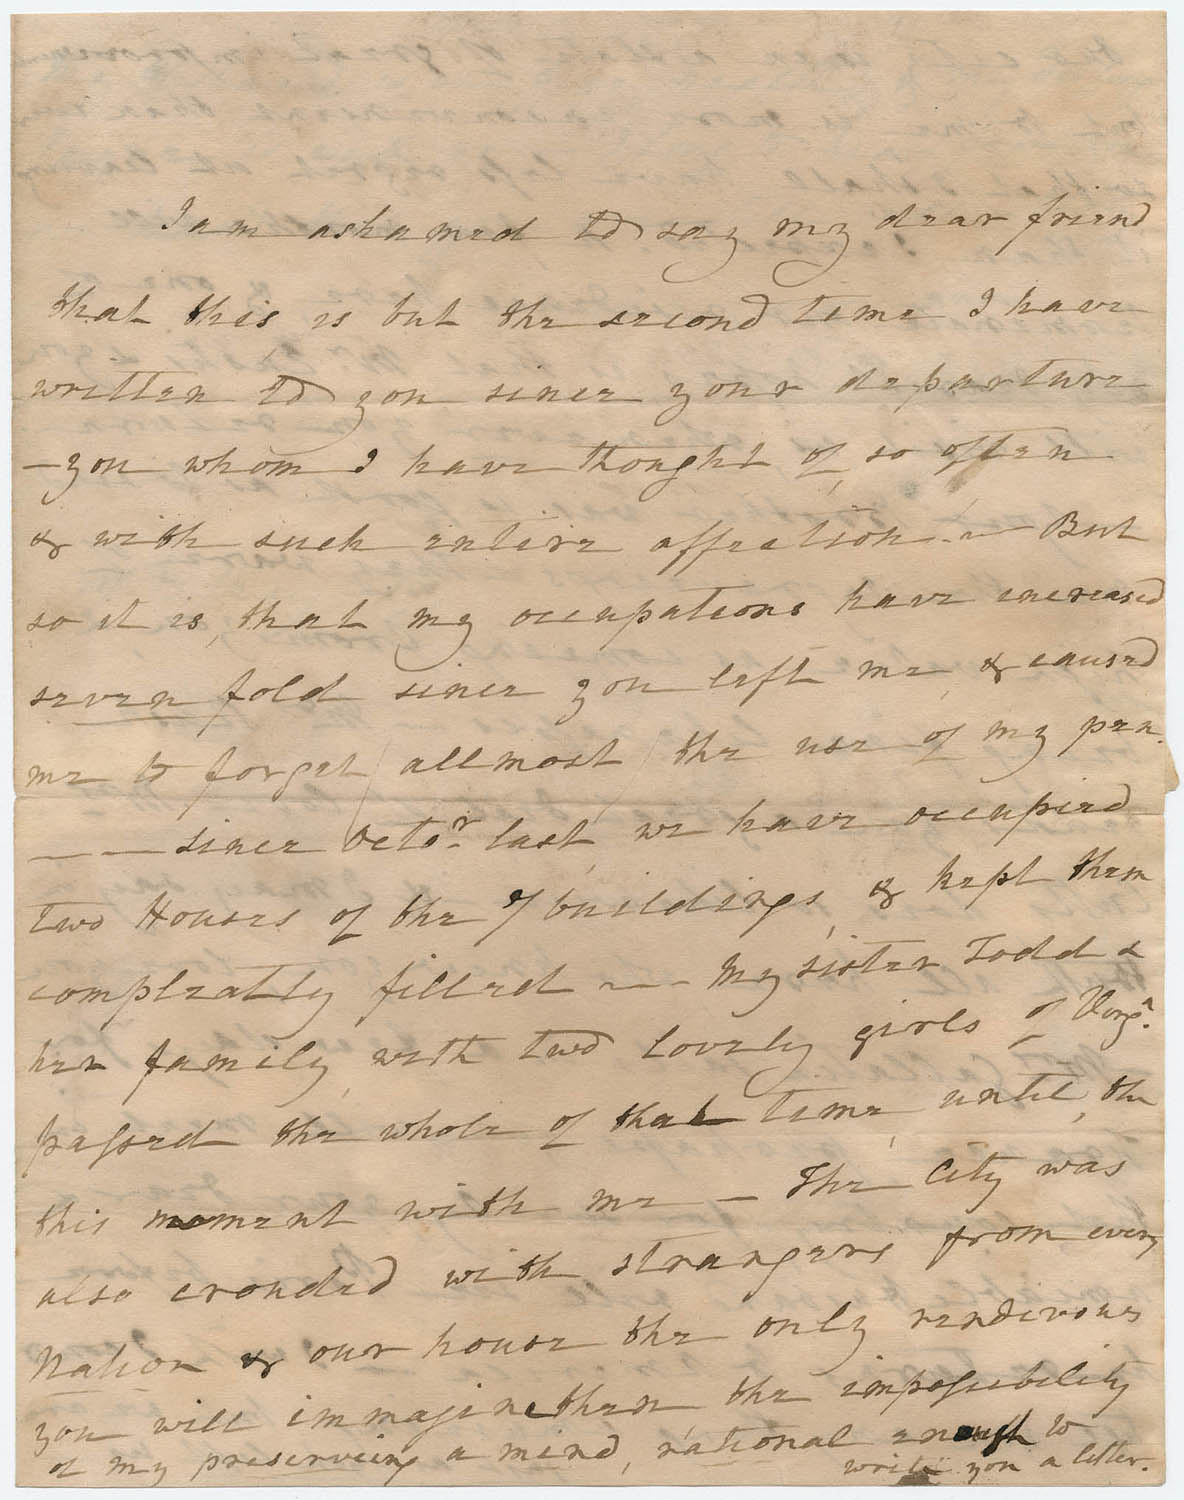 I am ashamed to say my dear friend
that this is but the second time I have
written to you since your departure
—you whom I have thought of, so often
& with such entire affection.— But
so it is, that my occupations have increased
seven fold since you left me, & caused
me to forget allmost the use of my pen.
— — since Octor. last, we have occupied
two Houses of the 7 buildings, & kept them
compleatly filled — — My sister Todd &
her family, with two lovely girls of Virga.
passed the whole of that time, until, the
this moment with me — The City was
also crouded with strangers from every
Nation & our house the only rendivous
you will immagine then the impossibility
of my preserving a mind, rational enough to
write you a letter.